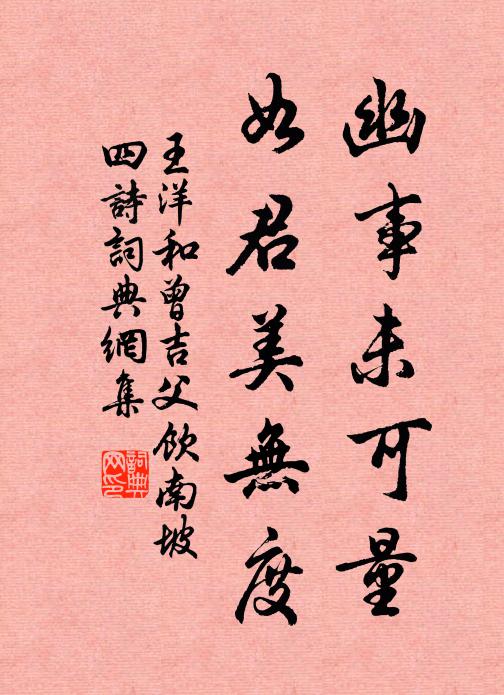 幽事未可量
如君美無度
王洋和曾吉父飲南坡
四詩詞典網集
詞典网印